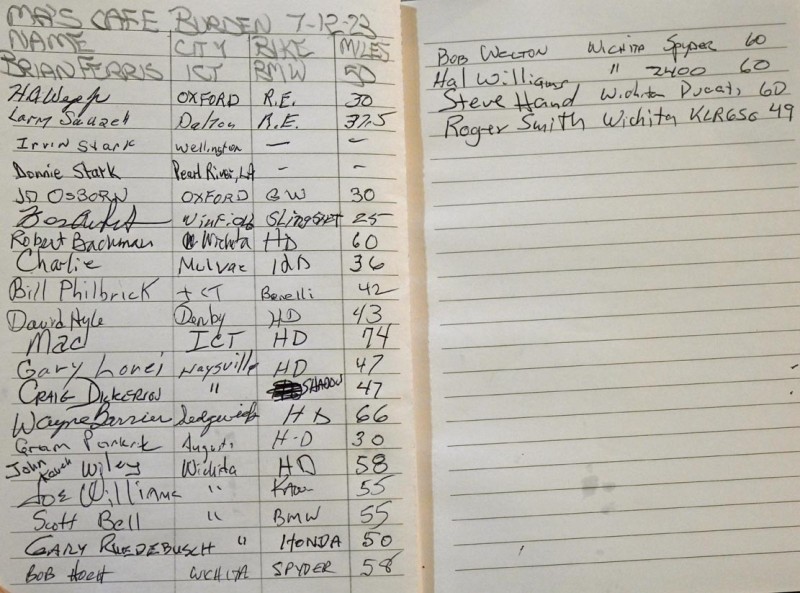 MA'S CAFE BURDEN 7-12-23
NAME CITY BIKE MILES
BRIAN FERRIS ICT BMW 50
OXFORD R.E. 30
Larry Dalton R.E. 37.5
Irvin Stark Wellington — –
Donnie Stark Pearl River, LA - -
JD OSBORN OXFORD GW 30
Winfield 25
Robert Backman Wichita HD 60
Charlie Mulvae 36
Bill Philbrick ICT Benelli 42
David Hyle Derby HD 43
Mac ICT HD 74
Gary Haysville HD 47
CRAIG DICKERSON " SHADOW 47
Wayne Sedgwick HD 66
Augusta H-D 30
John Wiley Wichita HD 58
JOE Williams " 55
Scott Bell " BMW 55
GARY RUEDEBUSCH " HONDA 50
BOB WICHITA SPYDER 58
BOB WELTON WICHITA SPYDER 60
Hal Williams " 2400 60
Steve Hand Wichita Ducati 60
Roger Smith Wichita KLR650 49